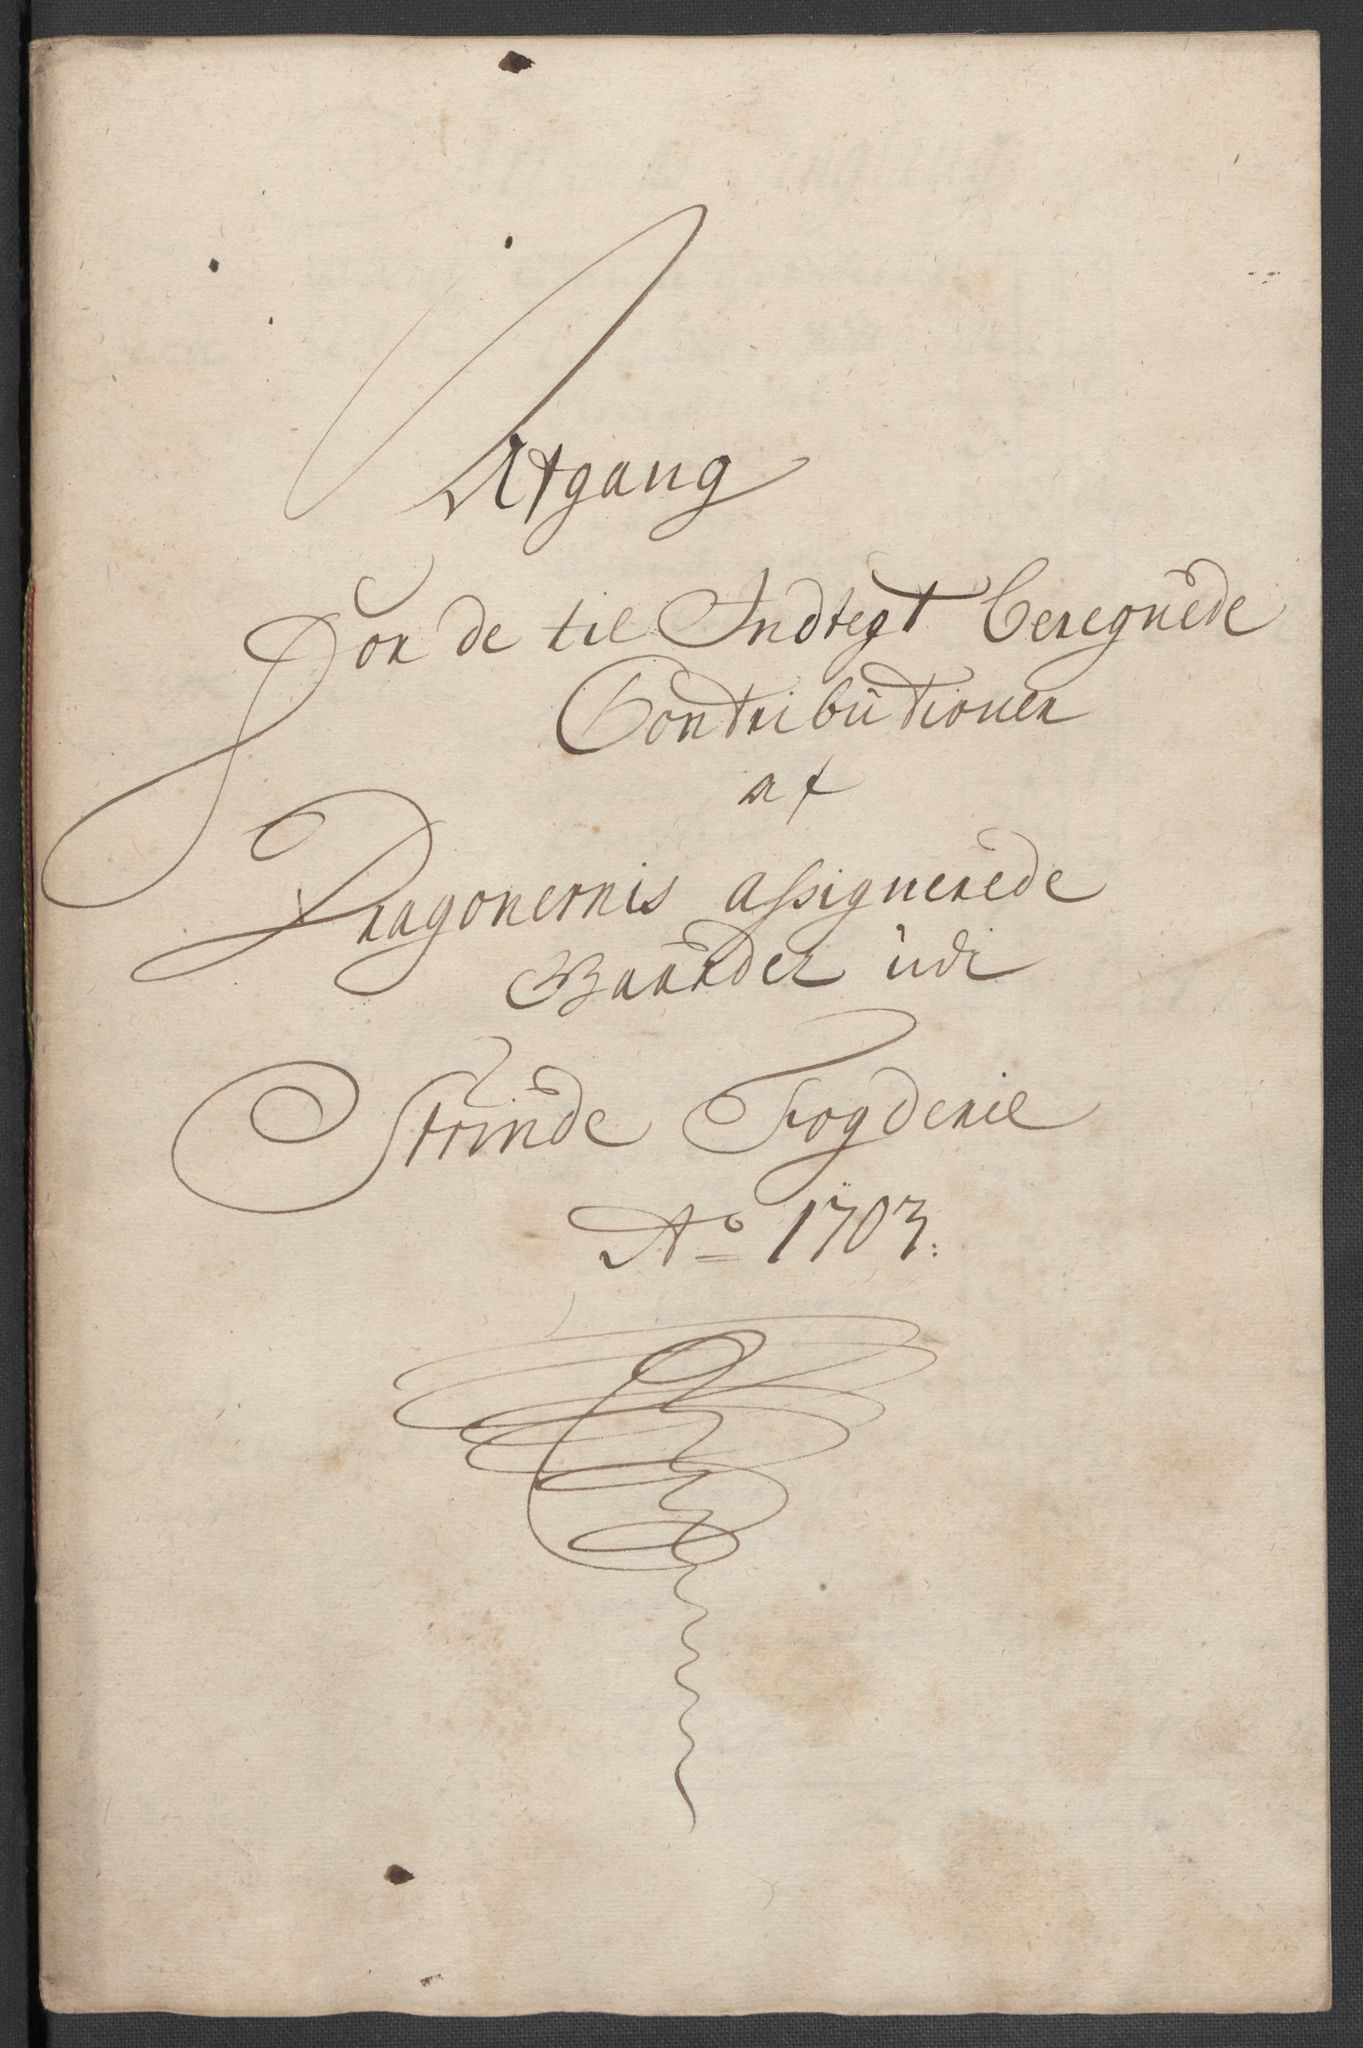 Afgang
For de til Indtegt beregnede
Contributioner
af
Dragonernis assignerede
Gaarder udi
Strinde Fogderie
Ao 1703.